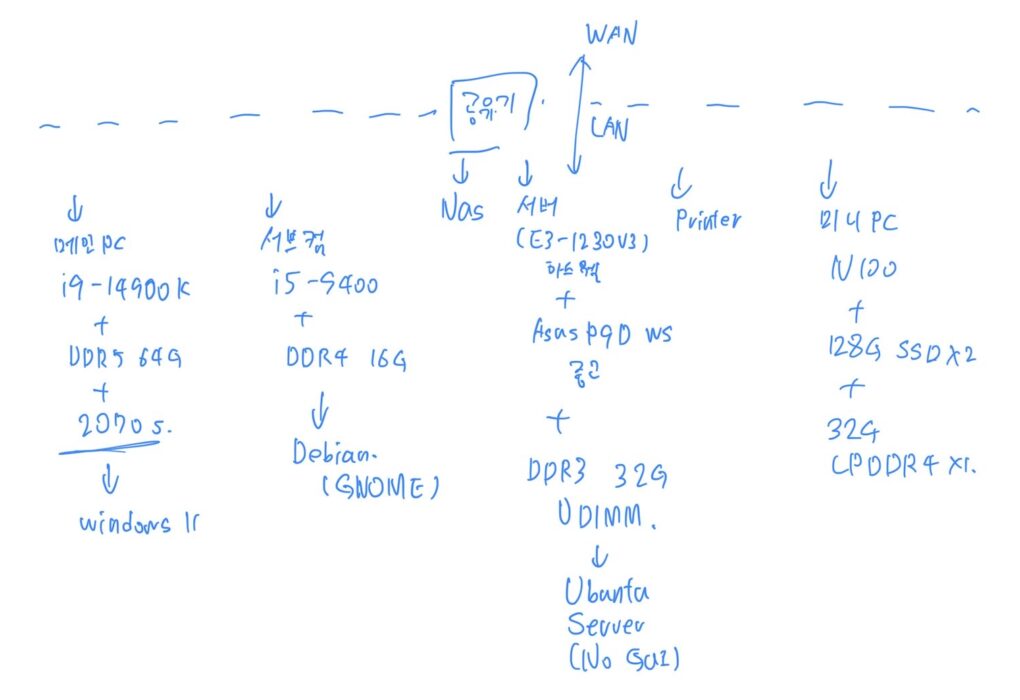 WAN
공유기
LAN
메인PC
i9-14900K
+
DDR5 64G
+
2070s.
windows 11
서브컴
i5-9400
+
DDR4 16G
Debian.
(GNOME)
Nas
서버
(E3-1230V3)
하스웰
+
Asus P9D WS
중고
+
DDR3 32G
UDIMM.
Ubuntu
Server
(No GUI)
Printer
미니PC
N100
+
128G SSD X2
+
32G
LPDDR4 X1.